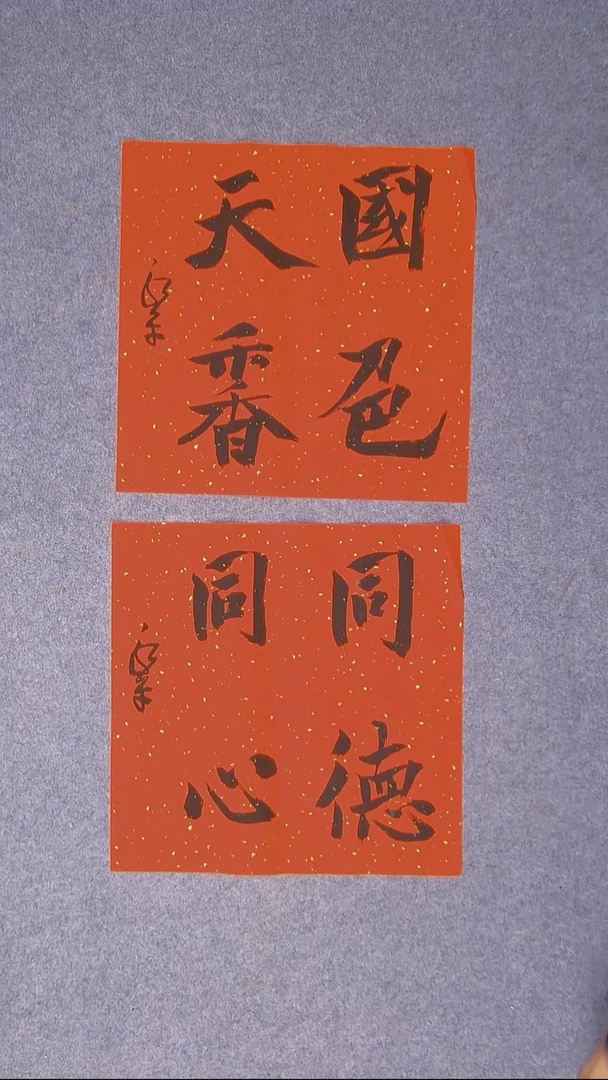 國色
天香
同德
同心